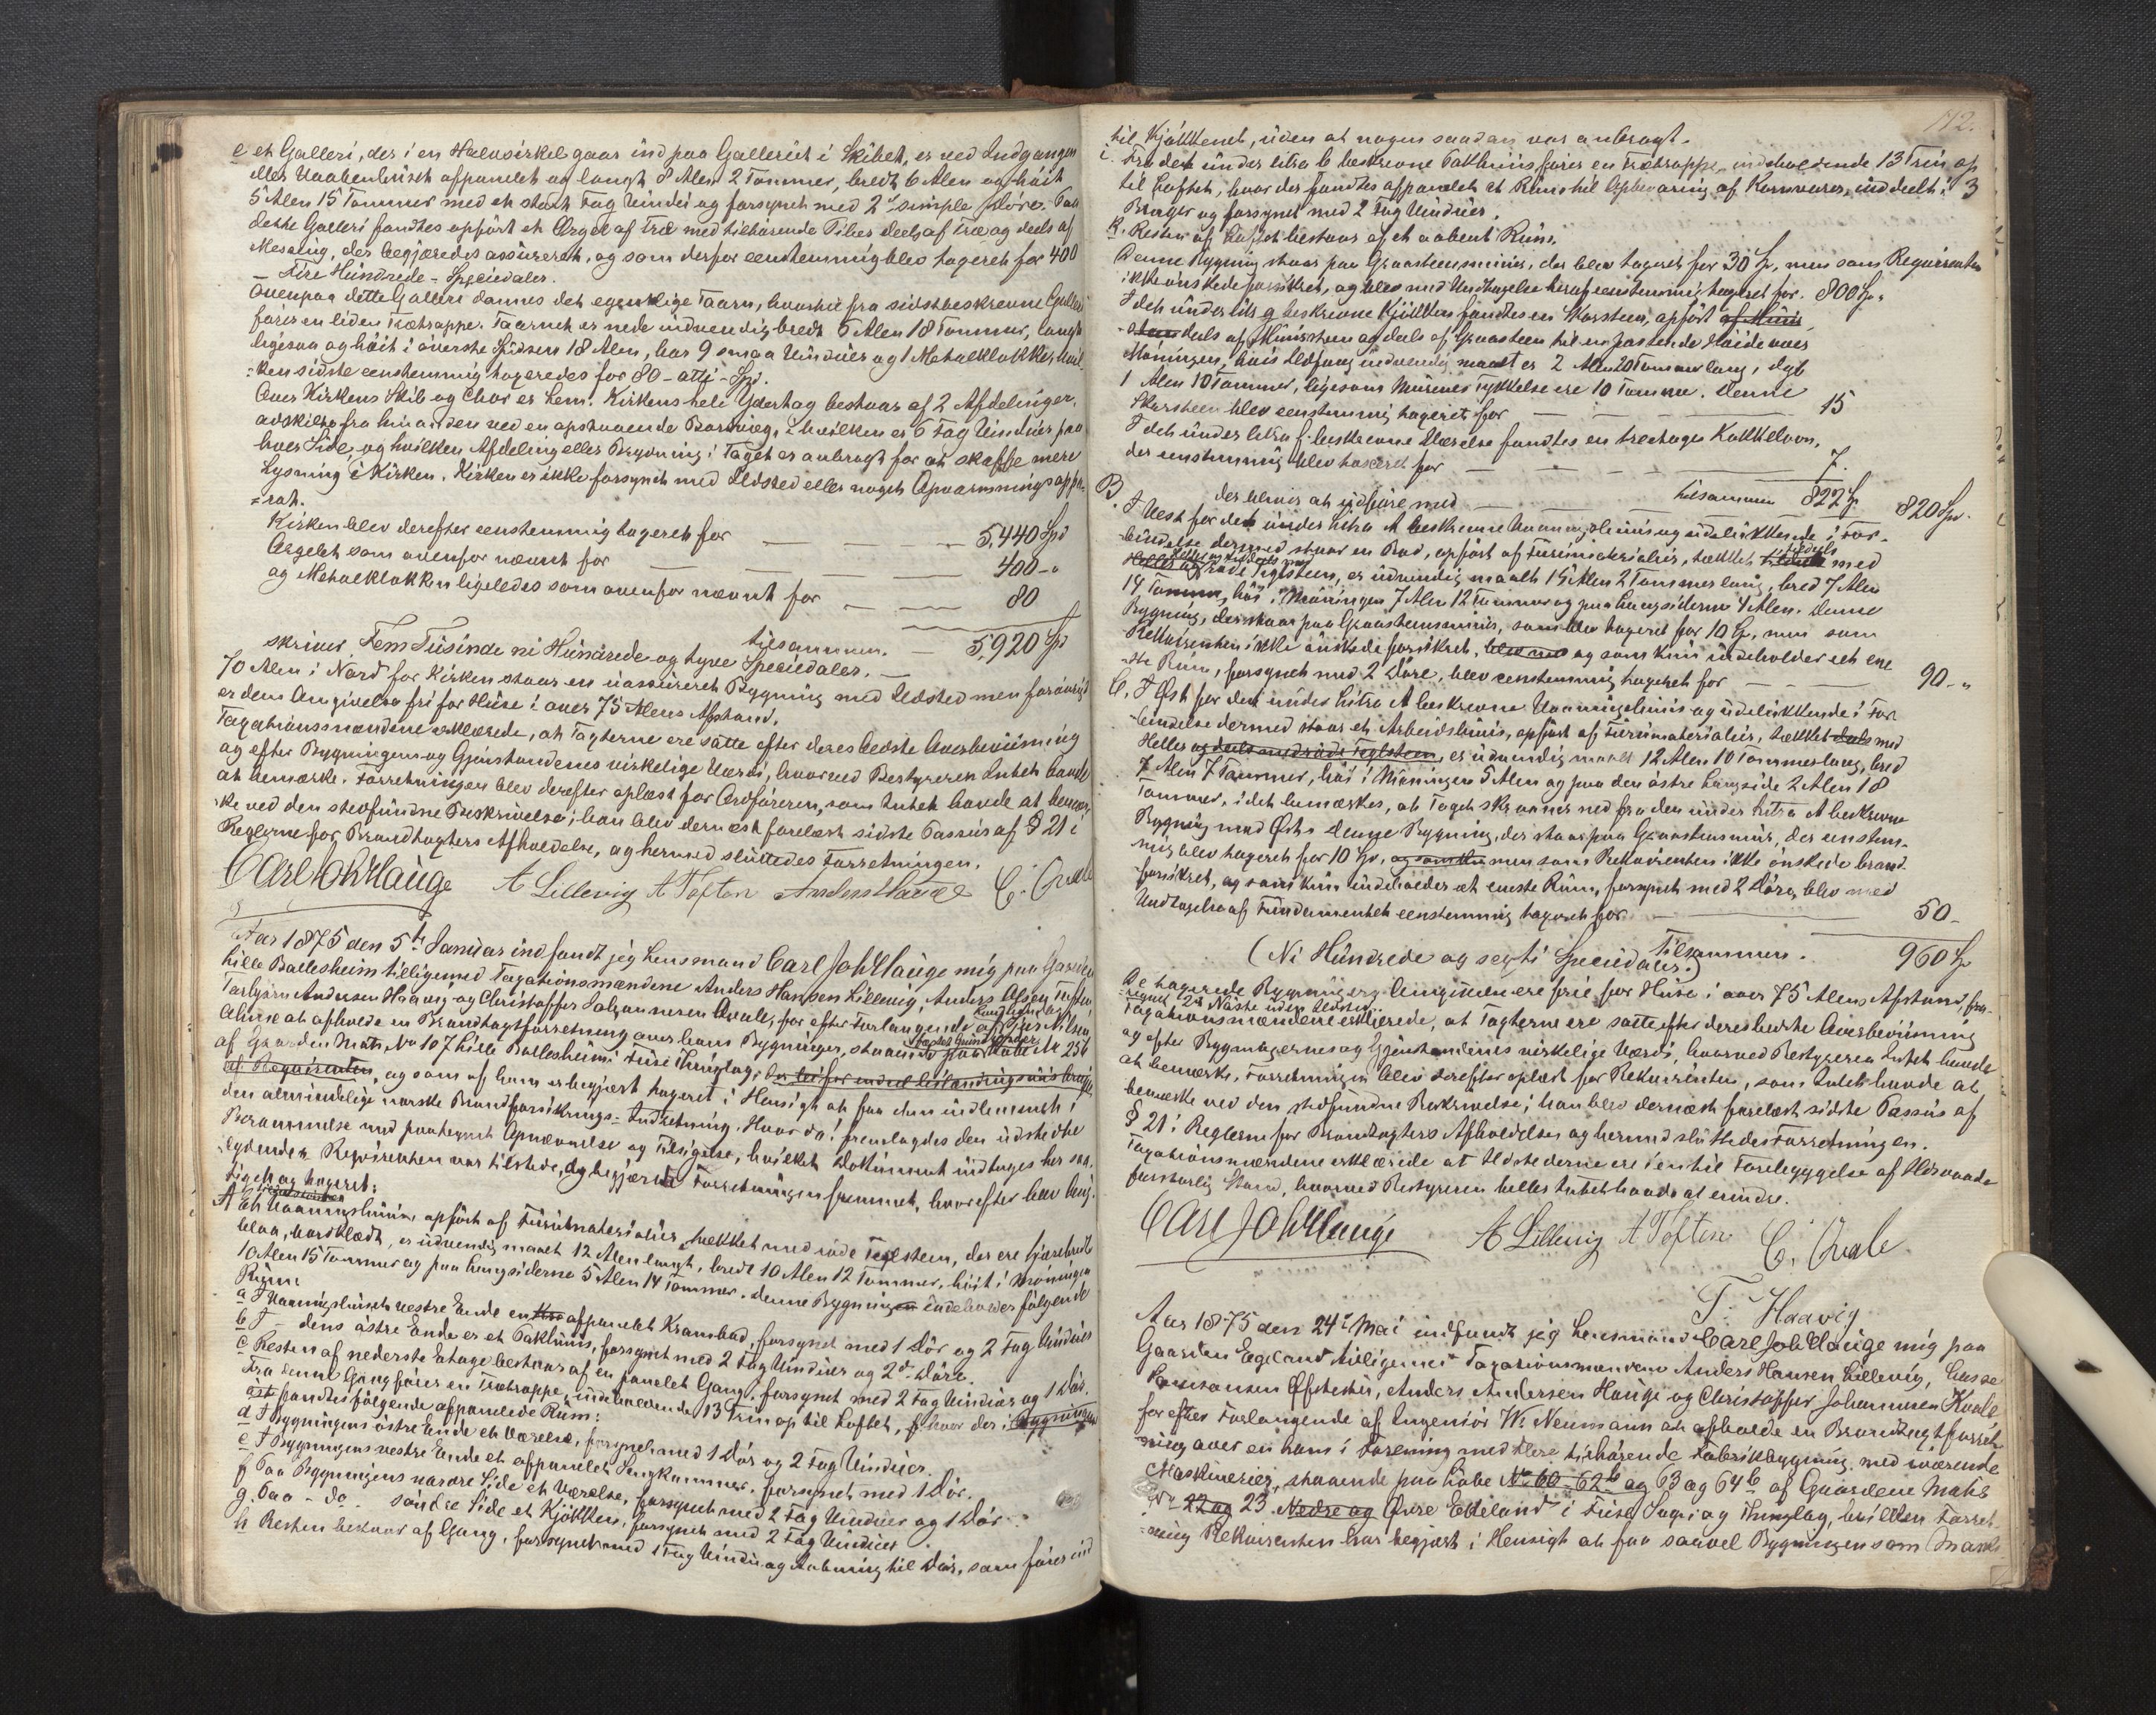 e et Galleri, der i en Halvsirkel gaar ind paa Galleriet i Skibet, er ved Indgangen
eller Vaabenhuset afpanelet og langt 8 Alen 2 Tommer, bredt 6 Alen og höit
5 Alen 15 Tommer med et stort Fag Vindu og forsynet med 2de simple Döre. Paa
dette Galleri fandtes opfört et Orgel af Træ med tilhörende Piber deels af Træ og deels af
Messing, der begjæredes assureret, og som derfor eenstemmig blev taxeret for 400
- Fire Hundrede - Speciedaler.
Ovenpaa dette Galleri dannes det egentlige Taarn, hvortil fra sidstbeskrevne Galleri
förer en liden Trætrappe. Taarnet er nede indvendig bredt 6 Alen 18 Tommer, langt
ligesaa og höit i överste Spidsen 18 Alen, har 9 smaa Vinduer og 1 Metalklokke, hvil-
=ken sidste eenstemmig taxeredes for 80 - otti - Spd.
Over Kirkens Skib og Chor er Lem. Kirkens hele Ydertag bestaar af 2 Afdelinger,
adskilte fra hinanden ved en opstaaende Bordvæg, i hvilken er 6 Fag Vinduer paa
hver Side, og hvilken Afdeling eller Brydning i Taget er anbragt for at skaffe mere
Lysning i Kirken. Kirken er ikke forsynet med Ildsted eller noget Opvarmningsappa-
=rat.
Kirken blev derefter eenstemmig taxeret for — — 5,440 Spd
Orgelet som ovenfor nævnt for — — 400 - "
og Metalklokken ligeledes som ovenfor nævnt for — — 80
tilsammen. — 5,920 Spd
skriver Fem Tusinde ni Hundrede og tyve Speciedaler. —
70 Alen i Nord for Kirken staar en uassureret Bygning med Ildsted men forövrigt
er dens Omgivelse fri for Huse i over 75 Alens Afstand.
Taxationsmændene erklærede, at Taxterne ere satte efter deres bedste Overbeviisning
og efter Bygningens og Gjenstandenes virkelige Værdi, hvorved Bestyreren Intet havde
at bemærke. Forretningen blev derefter oplæst for Ordföreren, som Intet havde at bemær-
ke ved den stedfundne Beskrivelse; han blev dernæst forelæst sidste Passus af § 21 i
Reglerne for Brandtaxters Afholdelse, og hermed sluttedes Forretningen.
Carl Joh Hauge A Lillevig A Tofton Anders Hauge C. Qvale
Aar 1875 den 5te Januar indfandt jeg Lensmand Carl Joh Hauge mig paa Gaarden
Lille Ballesheim tilligemed Taxationsmændene Anders Hansen Lillevig, Anders Olsen Tofton
Torbjörn Andersen Haavig og Christoffer Johannesen Qvale, for efter Forlangende af Landhandler Peer Nilsen
at afholde en Brandtaxtforretning over hans Bygninger, staaende paa Löbe No 256
af Gaarden Matr. No 107 Lille Ballesheim i Fuse Thinglag,
af Reqvirenten, og som af ham er begjært taxeret i Hensigt at faa dem indlemmet i
den almindelige norske Brandforsikrings-Indretning. Hvorda! fremlagdes den udstedte
Berammelse med paategnet Opnævnelse og Tilsigelse, hvilket Dokument indtages her saa-
lydende: Reqvirenten var tilstede, og begjærede Forretningen fremmet, hvorefter blev besig-
tiget og taxeret:
A Et Vaaningshuus, opfört af Furumaterialier, tækket med röde Teglsteen,
er udvendig maalt 12 Alen langt, bredt 10 Alen 12 Tommer, höit i Möningen
10 Alen 15 Tommer og paa Langsiderne 5 Alen 14 Tommer. Denne Bygning indeholder fölgende
Rum:
a I Vaaningshusets vestre Ende en afpanelet Krambod, forsynet med 1 Dör og 2 Fag Vinduer
b I - dens östre Ende er et Pakhuus, forsynet med 2 Fag Vinduer og 2de Döre.
c Resten af nederste Etage bestaar af en panelet Gang, forsynet med 2 Fag Vinduer og 1 Dör.
Fra denne Gang förer en Trætrappe, indeholdende 13 Trin op til Loftet, hvor der i Bygningen
fandtes fölgende afpanelede Rum:
d I Bygningens östre Ende et Værelse, forsynet med 1 Dör og 2 Fag Vinduer.
e I Bygningens vestre Ende et afpanelet Sengkammer, forsynet med 1 Dör.
f Paa Bygningens nordre Side et Værelse, forsynet med 2 Fag Vinduer og 1 Dör
g. Paa - do - söndre Side et Kjökken, forsynet med 2 Fag Vinduer.
h Resten bestaar af Gang, forsynet med 1 Fag Vindu og Aabning til Dör, som förer ind
112.
til Kjökkenet, uden at nogen saadan var anbragt.
i. Fra det under litra b beskrevne Pakhuus förer en Trætrappe, indeholdende 13 Trin op
til Loftet, hvor der fandtes afpanelet et Rum til Opbevaring af Kornvarer, inddeelt i 3
Binger og forsynet med 2 Fag Vinduer.
k. Resten af Loftet bestaar af et aabent Rum.
Denne Bygning staar paa Graasteensmuur, der blev taxeret for 30 Sp, men som Reqvirenten
ikke önskede forsikret, og blev med Undtagelse heraf eenstemmig taxeret for. 800 Sp "
I det under litr. g beskrevne Kjökken fandtes en Skorsteen, opfört af Muur
-steen deels af Muursteen og deels af Graasteen til en passende Höide over
Möningen, hvis Ildfang indvendig maalt er 2 Alen 20 Tommer lang, dyb
1 Alen 10 Tommer, ligesom Murenes Tykkelse ere 10 Tommer. Denne
Skorsteen blev eenstemmig taxeret for — — — 15
I det under litra f. beskrevne Værelse fandtes en treetages Kakkelovn,
der eenstemmig blev taxeret for — — — 7.
tilsammen 822 Sp
der bliver at udföre med — — 820 Spd.
B. I Vest for det under Litra A beskrevne Vaaningshuus og udelukkende i For-
bindelse dermed staar en Bod, opfört af Furumaterialier, tækket tildeels med
Heller og röde Teglsteen, er udvendig maalt 15 Alen 2 Tommer lang, bred 7 Alen
14 Tommer, höi i Möningen 7 Alen 12 Tommer og paa Langsiderne 4 Alen. Denne
Bygning, der staar paa Graasteensmuur, som blev taxeret for 10 Sp, men som
Rekvirenten ikke önskede forsikret, blev med og som kun indeholder eet ene-
ste Rum, forsynet med 2 Döre, blev eenstemmig taxeret for — — 90 - "
C. I Öst for det under Litra A beskrevne Vaaningshuus og udelukkende i For-
bindelse dermed staar et Arbeidshuus, opfört af Furumaterialier, tækket deels med
Heller og deels med röde Teglsteen, er udvendig maalt 12 Alen 10 Tommer lang, bred
7 Alen 7 Tommer, höi i Möningen 5 Alen og paa den östre Langside 2 Alen 18
Tommer, idet bemærkes, at Taget skraaner ned fra den under Litra A beskrevne
Bygning mod Öst. Denne Bygning, der staar paa Graasteensmuur, der eenstem-
mig blev taxeret for 10 Sp, og som kun men som Rekvirenten ikke önskede brand-
forsikret, og som kun indeholder et eneste Rum, forsynet med 2 Döre, blev med
Undtagelse af Fundamentet eenstemmig taxeret for — 50 -
Tilsammen. 960 Sp
(Ni Hundrede og sexti Speciedaler.)
De taxerede Bygningers Omgivelser ere frie for Huse i over 75 Alens Afstand, fra-
regnet 2de Nöste uden Ildsted.
Taxationsmændene erklærede, at Taxterne ere satte efter deres bedste Overbeviisning
og efter Bygningernes og Gjenstandenes virkelige Værdi, hvorved Bestyreren Intet havde
at bemærke. Forretningen blev derefter oplæst for Rekvirenten, som Intet havde at
bemærke ved den stedfundne Beskrivelse; han blev dernæst forelæst sidste Passus af
§ 21 i Reglerne for Brandtaxters Afholdelse og hermed sluttedes Forretningen.
Taxationsmændene erklærede at Ildstederne ere i en til Forebyggelse af Ildsvaade
forsvarlig Stand, hvorved Bestyreren heller Intet havde at erindre.
Carl Joh Hauge A Lillevig A Tofton C. Qvale
T. Haavig
Aar 1875 den 24de Mai indfandt jeg Lensmand Carl Joh Hauge mig paa
Gaarden Egeland tilligemed Taxationsmændene Anders Hansen Lillevig, Lasse
Öfsthus, Anders Andersen Hauge og Christoffer Johannesen Kvale
for efter Forlangende af Ingeniör W. Neumann at afholde en Brandtaxtforret-
ning over en ham i Forening med Flere tilhörende Fabrikbygning med iværende
Maskinerier, staaende paa Löbe No 60 - 62 b og 63 og 64 b af Gaardene Matr
No 22 og 23. Nedre og Övre Eikeland i Fuse Sogn og Thinglag, hvilken Forret-
ning Rekvirenten har begjært i Hensigt at faa saavel Bygningen som Mask